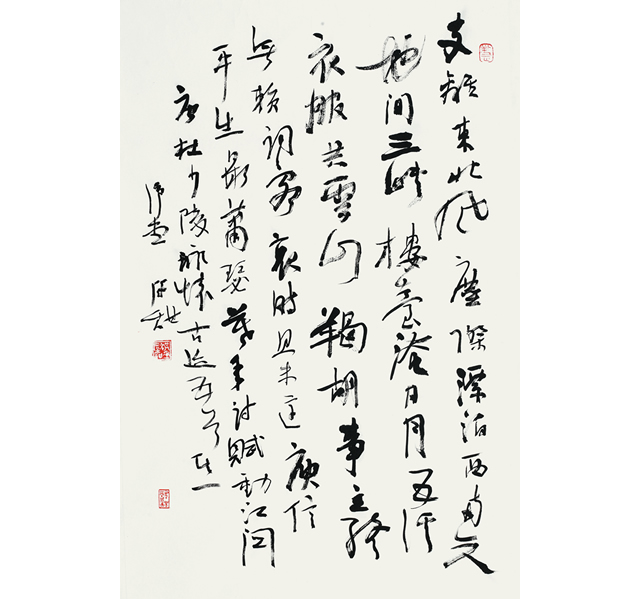 支離東北風塵際漂泊西南天
地間三峽樓臺淹日月五溪
衣服共雲山羯胡事主終
無賴詞客哀時且未還庾信
平生最蕭瑟暮年詩賦動江關
唐杜少陵詠懷古迹五首其一